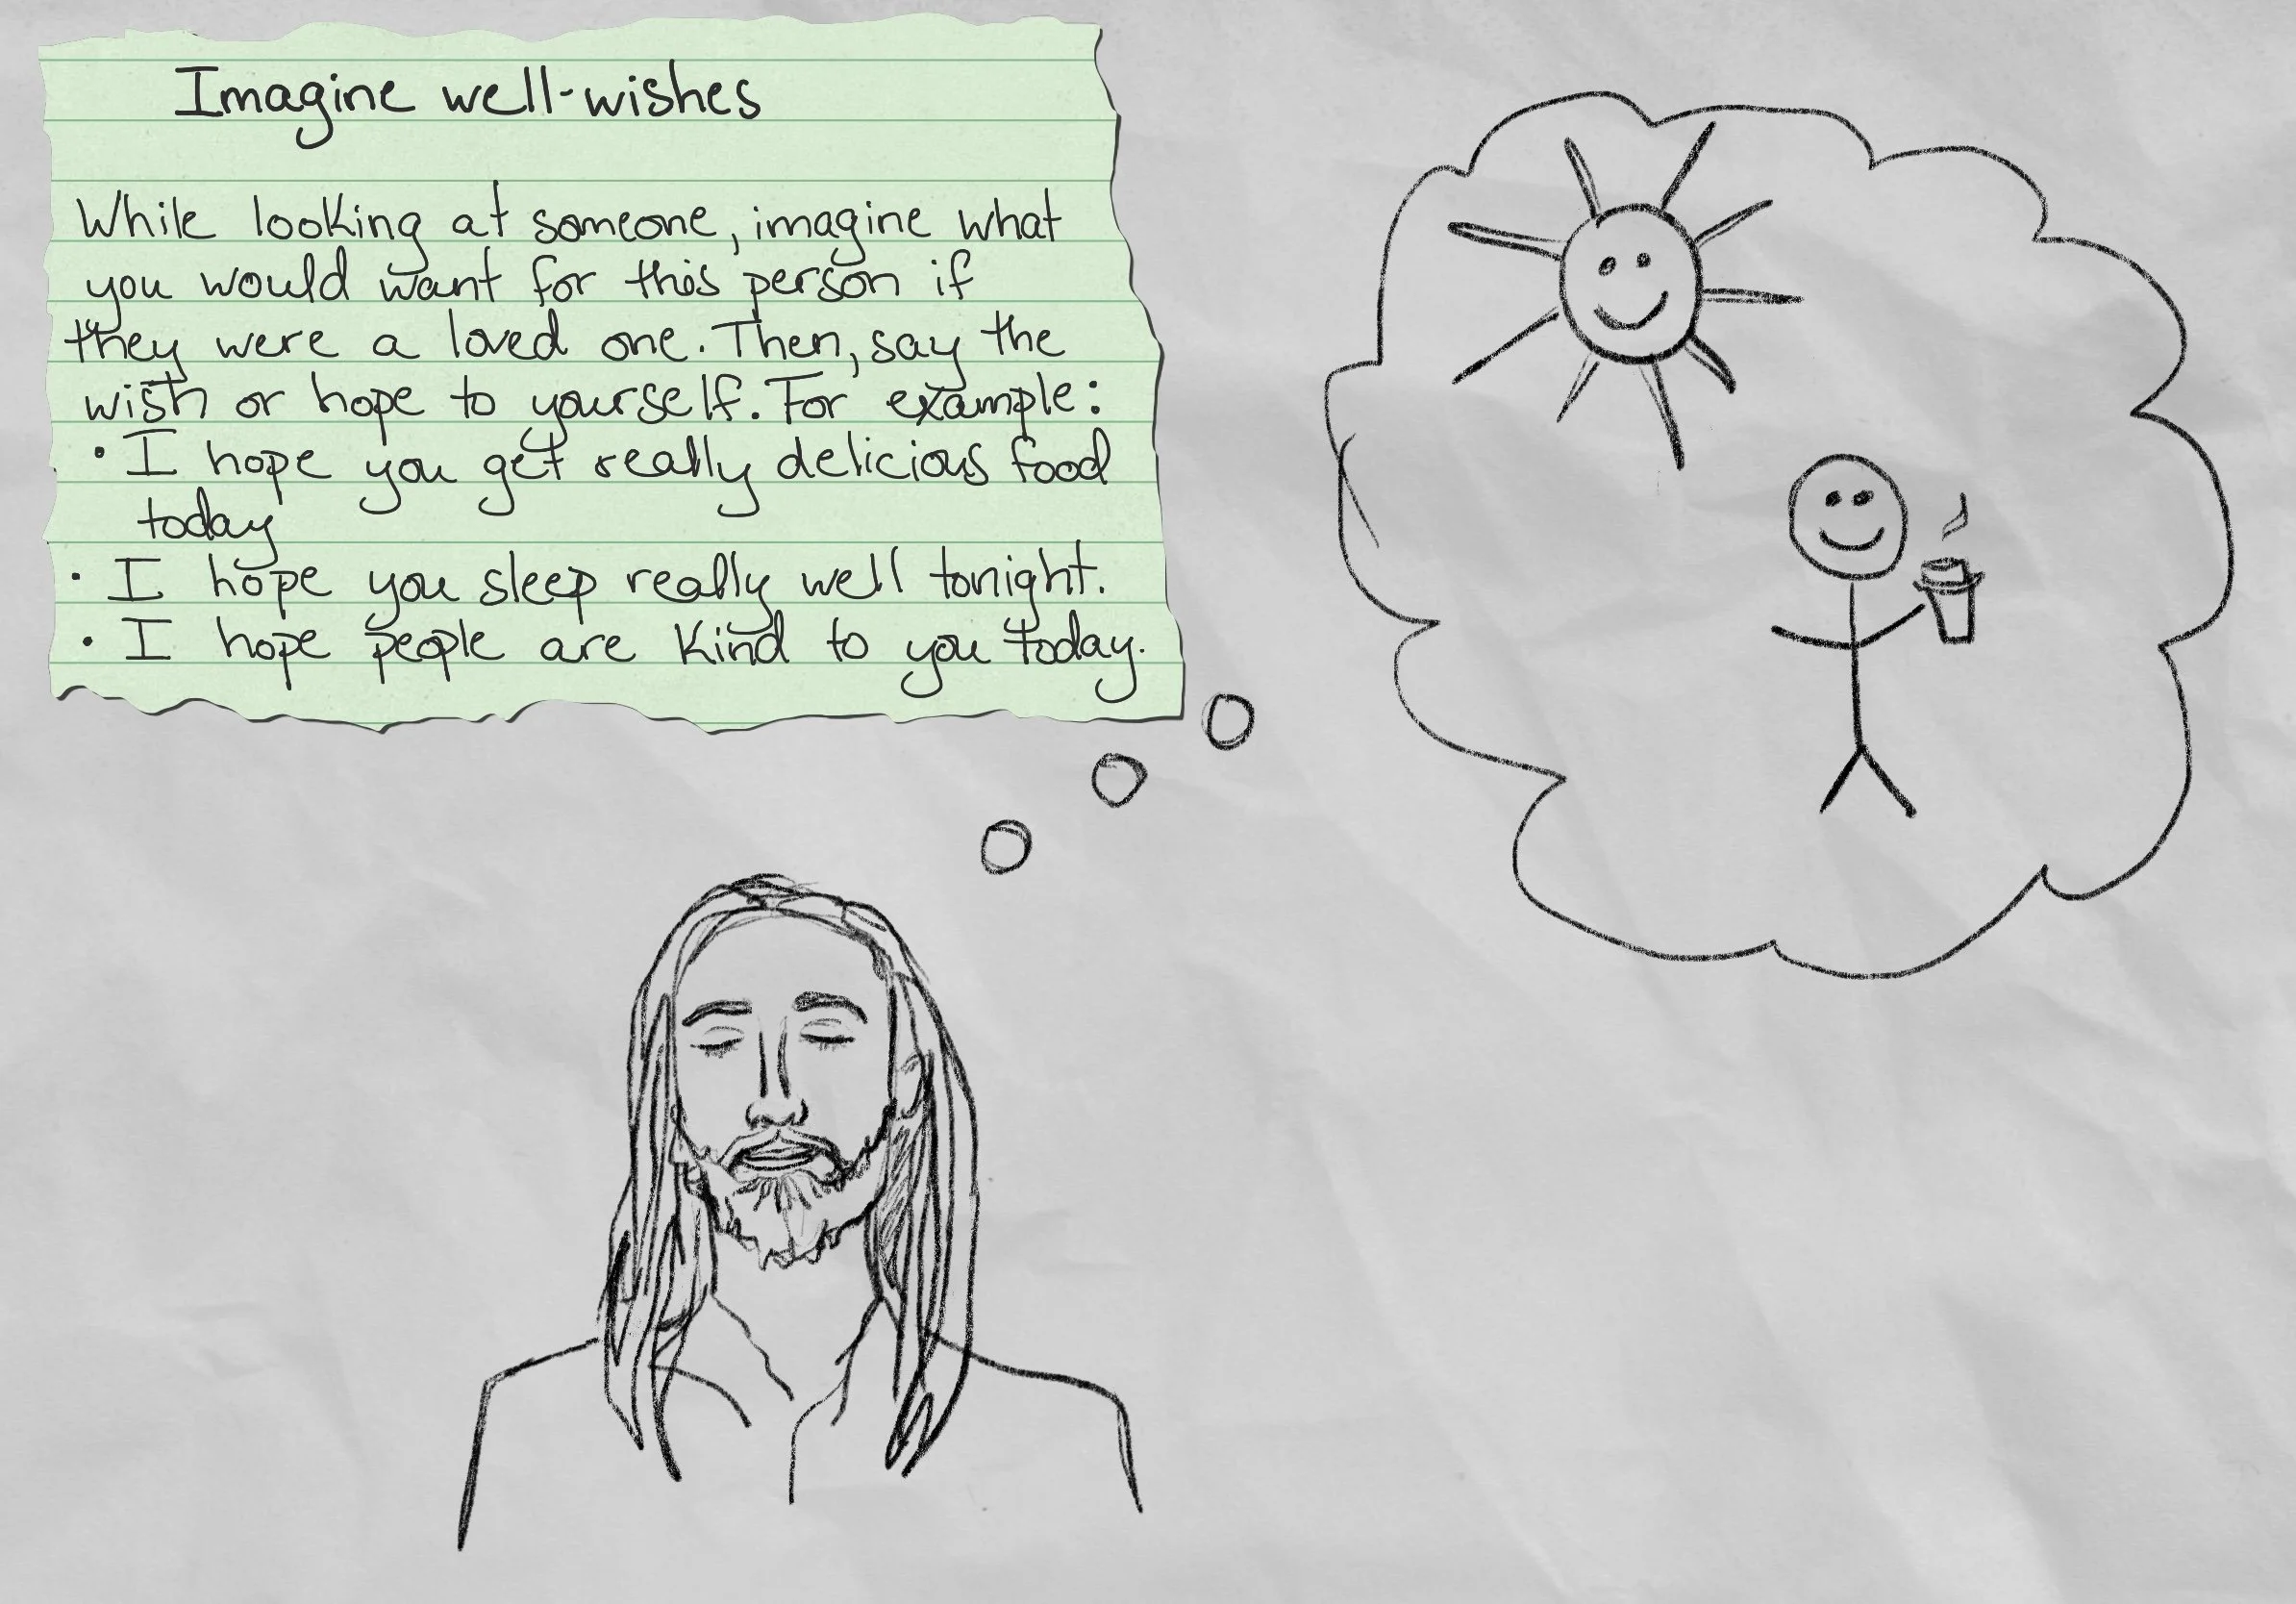 Imagine well-wishes
While looking at someone, imagine what
you would want for this person if
they were a loved one. Then, say the
wish or hope to yourself. For example:
• I hope you get really delicious food
today
• I hope you sleep really well tonight.
• I hope people are kind to you today.